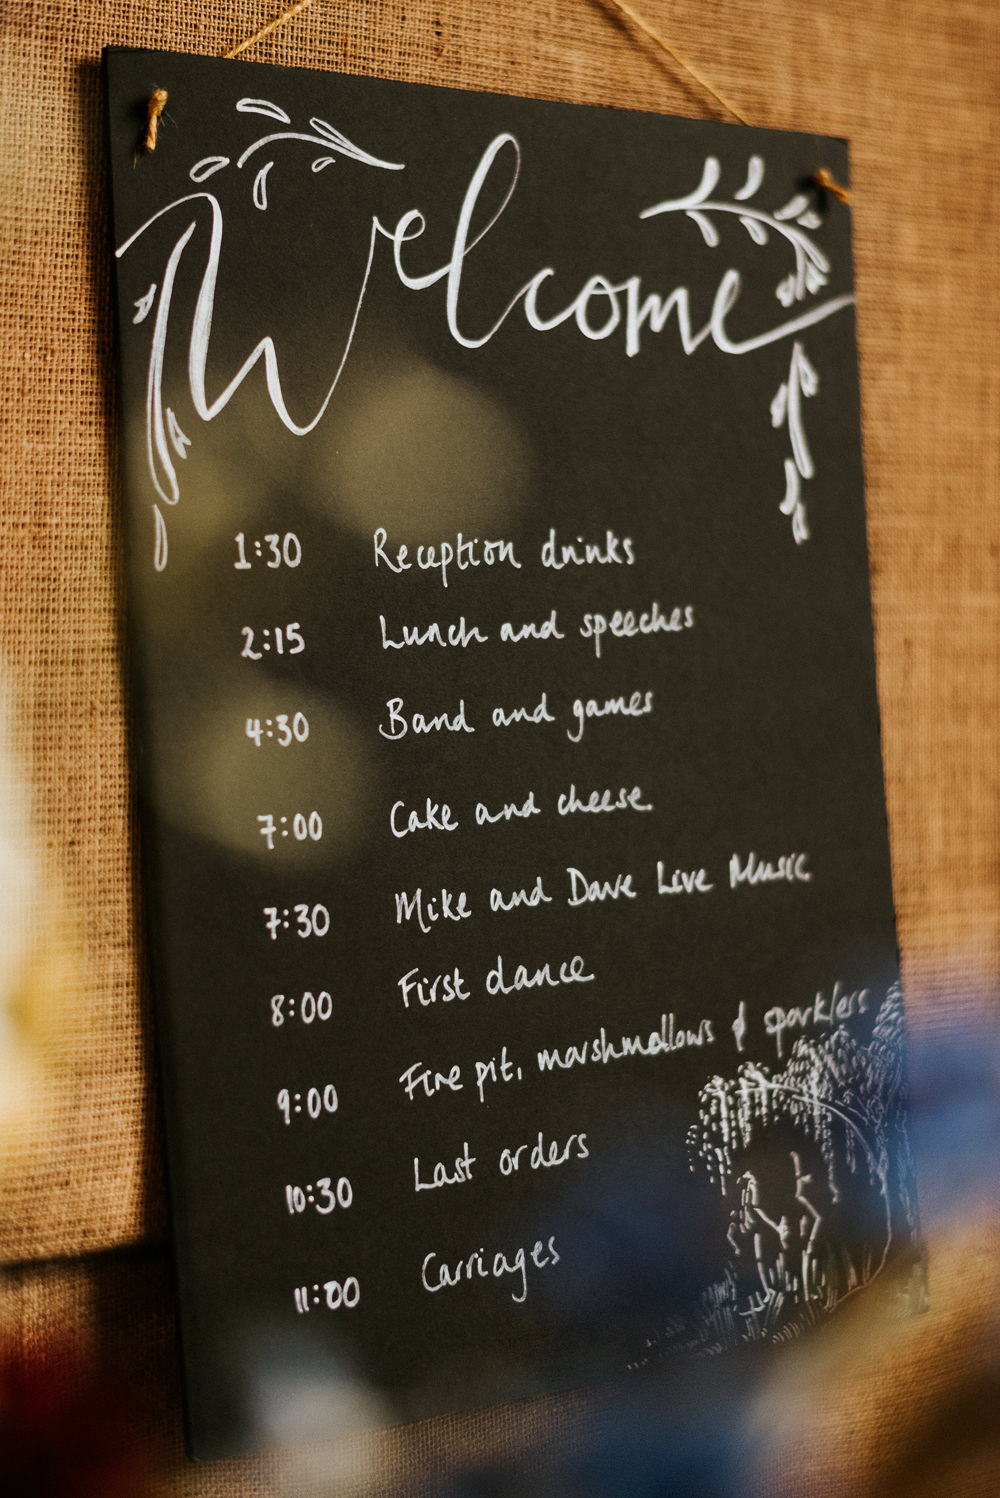 Welcome
1:30 Reception drinks
2:15 Lunch and speeches
4:30 Band and games
7:00 Cake and cheese
7:30 Mike and Dave Live Music
8:00 First dance
9:00 Fire pit, marshmallows & sparklers
10:30 Last orders
11:00 Carriages